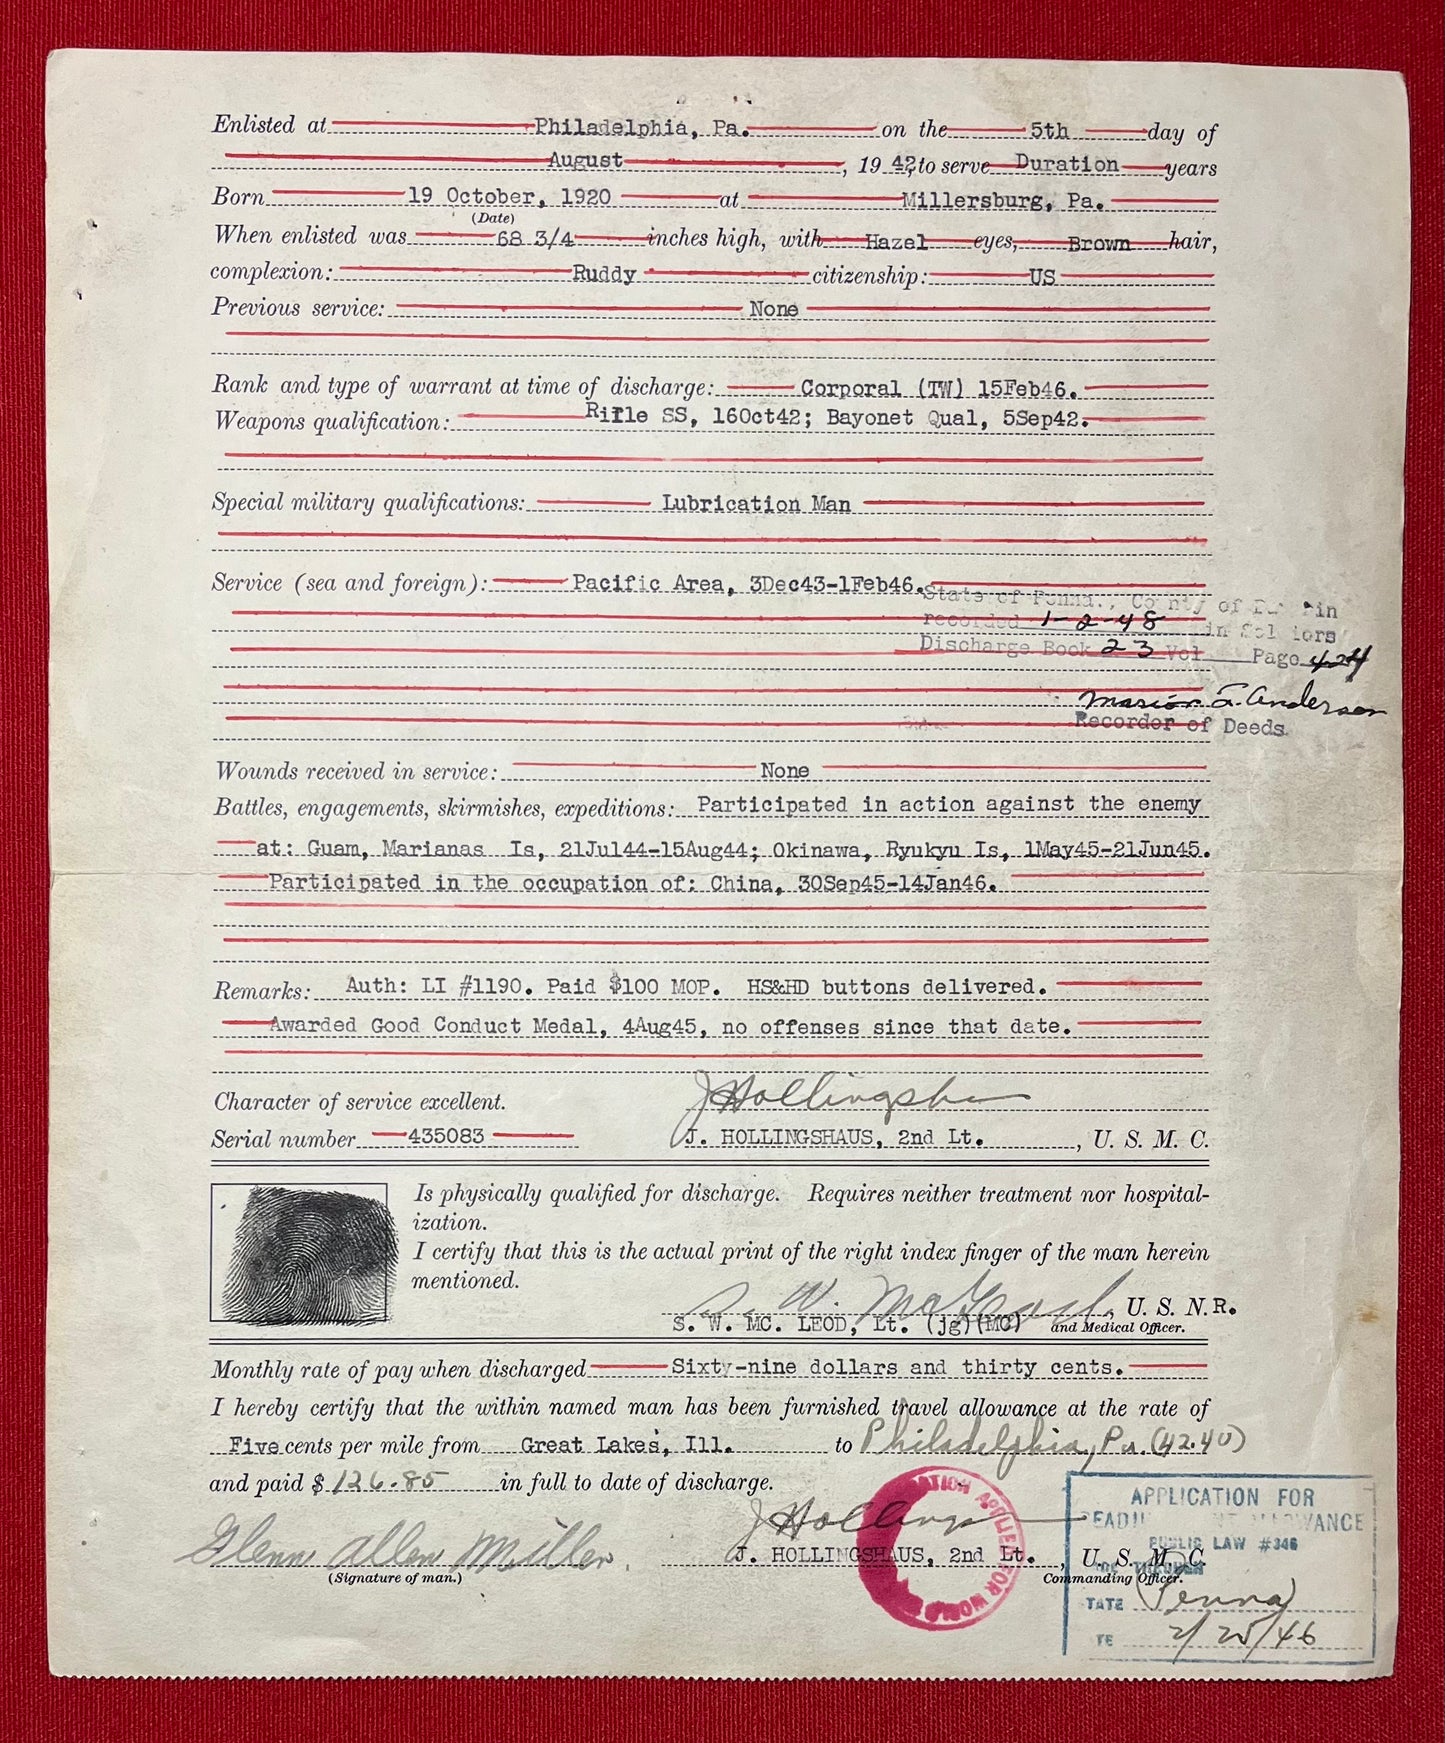 Enlisted at Philadelphia, Pa. on the 5th day of
August, 1942, to serve Duration years
Born 19 October, 1920 at Millersburg, Pa.
(Date)
When enlisted was 68 3/4 inches high, with Hazel eyes, Brown hair,
complexion: Ruddy citizenship: US
Previous service: None
Rank and type of warrant at time of discharge: Corporal (TW) 15Feb46.
Weapons qualification: Rifle SS, 16Oct42; Bayonet Qual, 5Sep42.
Special military qualifications: Lubrication Man
Service (sea and foreign): Pacific Area, 3Dec43-1Feb46.
State of Penna., County of
recorded 1-2-48 in
Discharge Book 23 Vol Page 424
Marion E. Anderson
Recorder of Deeds
Wounds received in service: None
Battles, engagements, skirmishes, expeditions: Participated in action against the enemy
at: Guam, Marianas Is, 21Jul44-15Aug44; Okinawa, Ryukyu Is, 1May45-21Jun45.
Participated in the occupation of: China, 30Sep45-14Jan46.
Remarks: Auth: LI #1190. Paid $100 MOP. HS&HD buttons delivered.
Awarded Good Conduct Medal, 4Aug45, no offenses since that date.
Character of service excellent.
Serial number 435083 J. HOLLINGSHAUS, 2nd Lt., U. S. M. C.
Is physically qualified for discharge. Requires neither treatment nor hospital-
ization.
I certify that this is the actual print of the right index finger of the man herein
mentioned.
S. W. McLeod, U. S. N.R.
S. W. MC. LEOD, Lt. (jg)(MC) and Medical Officer.
Monthly rate of pay when discharged Sixty-nine dollars and thirty cents.
I hereby certify that the within named man has been furnished travel allowance at the rate of
Five cents per mile from Great Lakes, Ill. to Philadelphia, Pa. (42.40)
and paid $ 126.85 in full to date of discharge.
Glenn Allen Miller
(Signature of man.)
J. HOLLINGSHAUS, 2nd Lt., U. S. M. C.
Commanding Officer.
APPLIED FOR WORLD
APPLICATION FOR
PUBLIC LAW #346
THROUGH
Penna
2/25/46